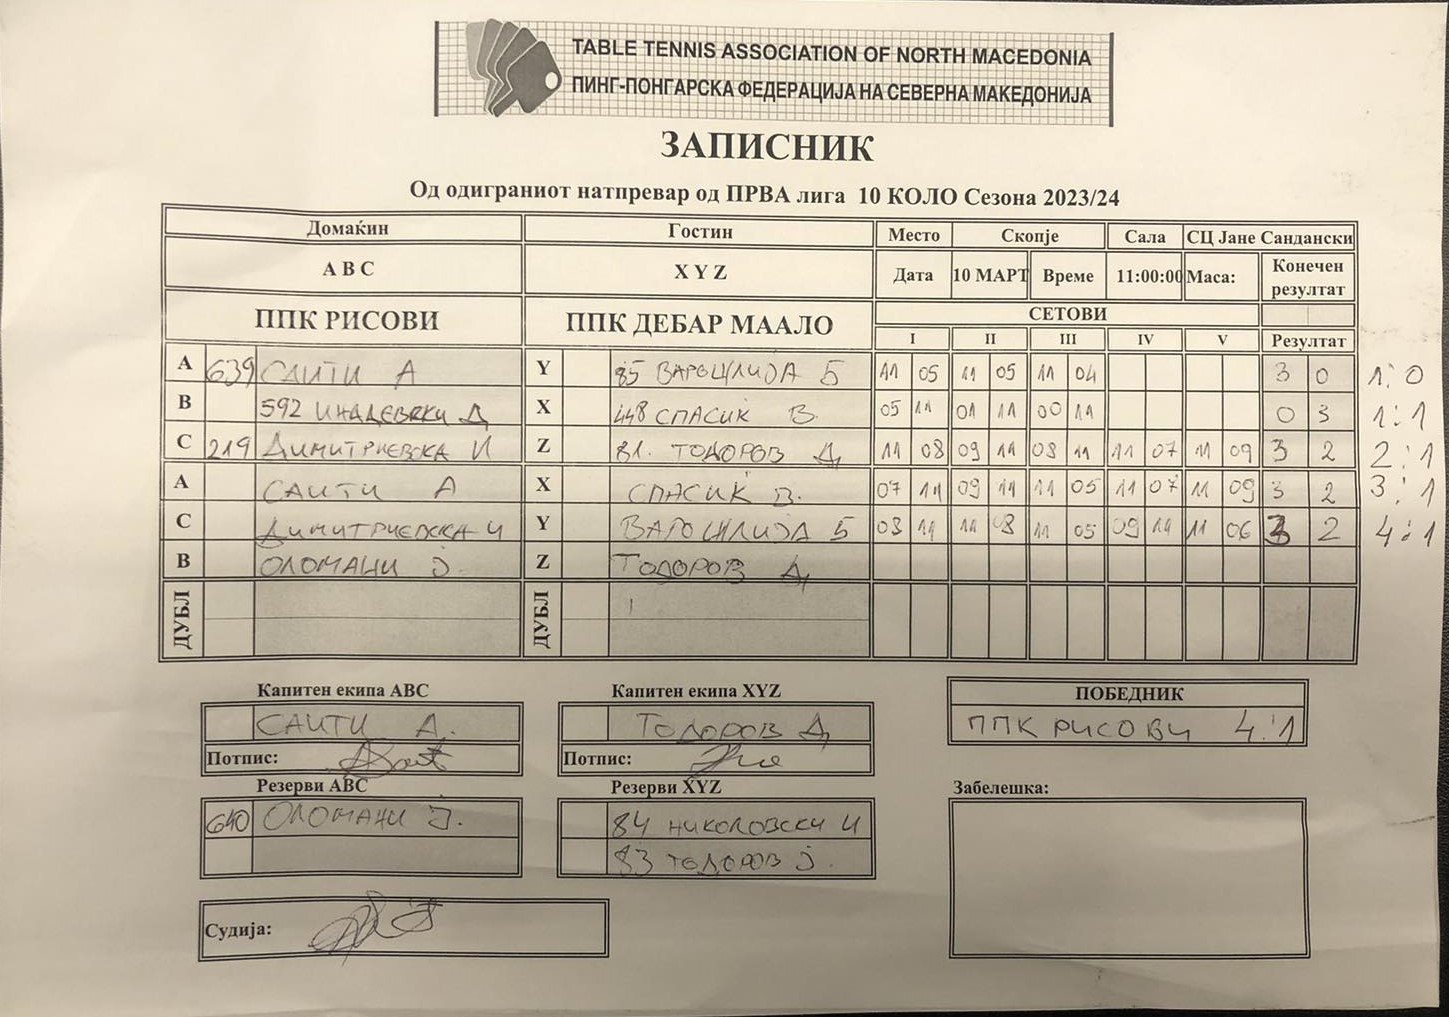 TABLE TENNIS ASSOCIATION OF NORTH MACEDONIA
ПИНГ-ПОНГАРСКА ФЕДЕРАЦИЈА НА СЕВЕРНА МАКЕДОНИЈА
ЗАПИСНИК
Од одиграниот натпревар од ПРВА лига 10 КОЛО Сезона 2023/24
Домаќин Гостин Место Скопје Сала СЦ Јане Сандански
A B C X Y Z Дата 10 МАРТ Време 11:00:00 Маса: Конечен резултат
ППК РИСОВИ ППК ДЕБАР МААЛО СЕТОВИ
I II III IV V Резултат
A 639 САИТИ А Y 85 ВАРОШЛИЈА Б 11 05 11 05 11 04 3 0 1:0
B 592 ИНАДЕВСКИ Д X 448 СПАСИЌ В. 05 11 01 11 00 11 0 3 1:1
C 219 ДИМИТРИЕВСКА И Z 81. ТОДОРОВ Д 11 08 09 11 08 11 11 07 11 09 3 2 2:1
A САИТИ А X СПАСИЌ В. 07 11 09 11 11 05 11 07 11 09 3 2 3:1
C ДИМИТРИЕВСКА И Y ВАРОШЛИЈА Б 03 11 11 08 11 05 09 11 11 06 3 2 4:1
B ОЛОМАНИ Ј. Z ТОДОРОВ Д
ДУБЛ ДУБЛ
Капитен екипа ABC Капитен екипа XYZ ПОБЕДНИК
САИТИ А. ТОДОРОВ Д ППК РИСОВИ 4:1
Потпис: Потпис:
Резерви ABC Резерви XYZ Забелешка:
640 ОЛОМАНИ Ј. 84 НИКОЛОВСКИ И
83 ТОДОРОВ Ј.
Судија: